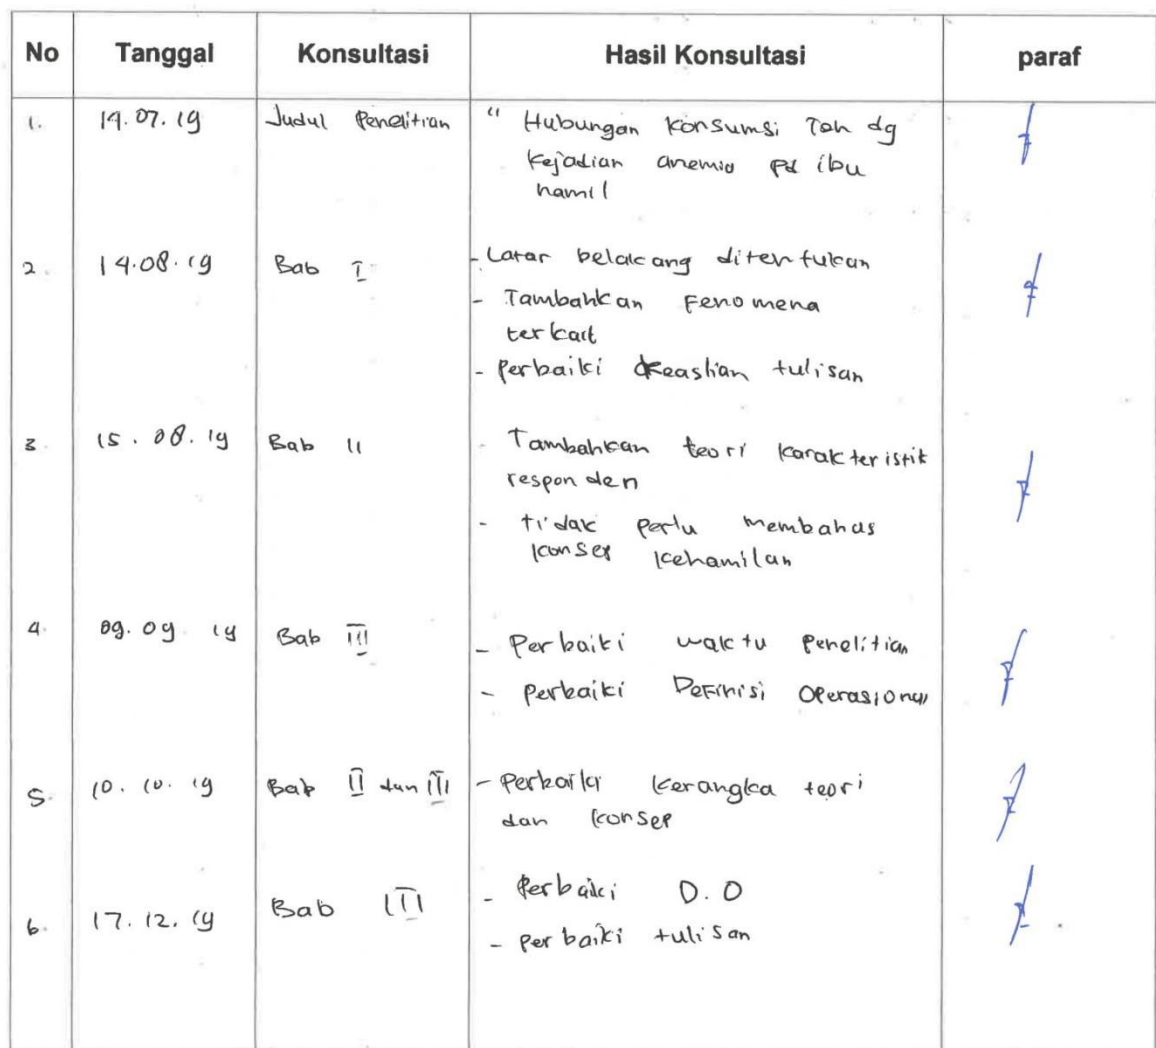 No Tanggal Konsultasi Hasil Konsultasi paraf
1. 19.07.19 Judul Penelitian " Hubungan Konsumsi Teh dg
kejadian anemia pd ibu
hamil
2. 14.08.19 Bab I - Latar belakang ditentukan
- Tambahkan Fenomena
terkait
- perbaiki keaslian tulisan
3. 15.08.19 Bab II - Tambahkan teori karakteristik
responden
- tidak perlu membahas
konsep kehamilan
4. 09.09 19 Bab III - Perbaiki waktu penelitian
- Perbaiki Definisi Operasional
5. 10.10.19 Bab II dan III - Perbaiki kerangka teori
dan konsep
6. 17.12.19 Bab III - Perbaiki D.O
- perbaiki tulisan